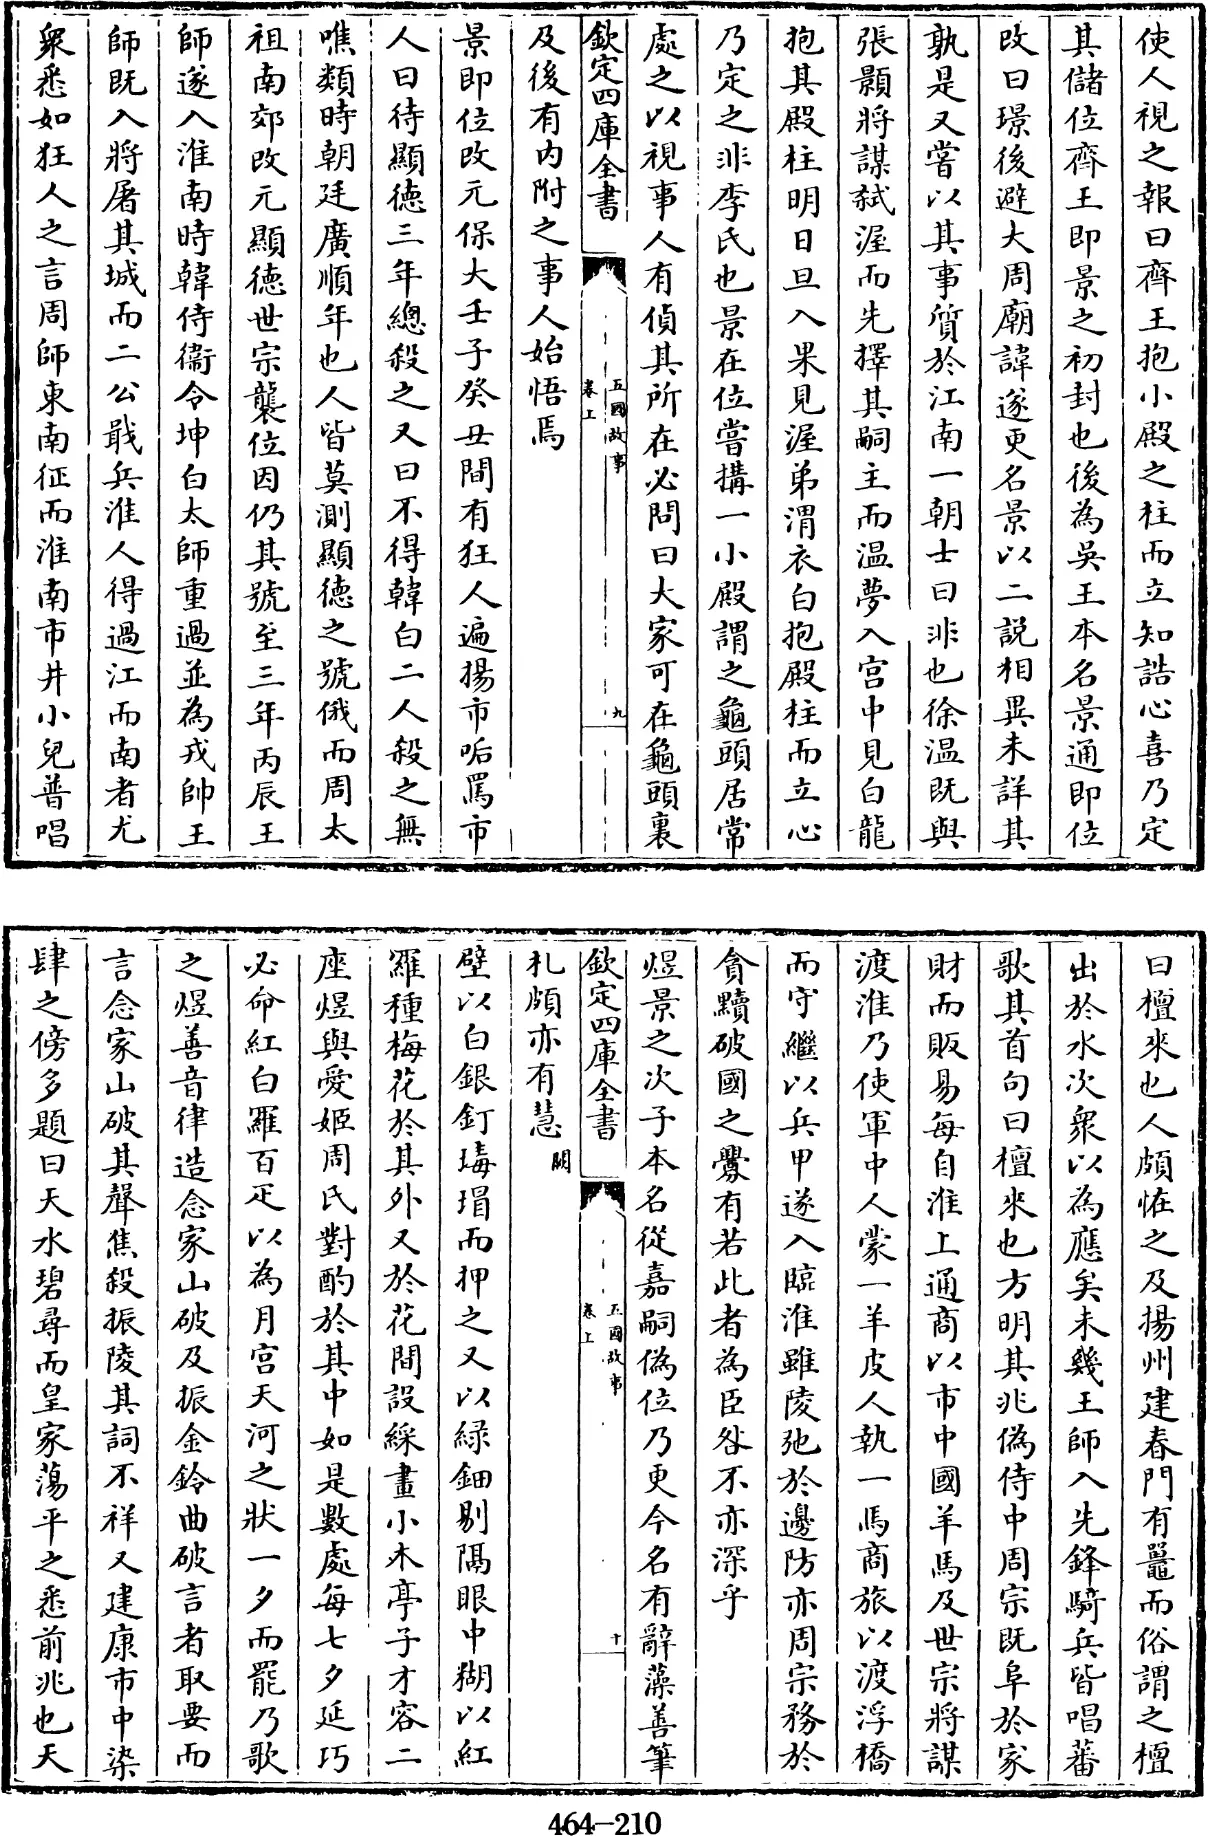 使人視之報曰齊王抱小殿之柱而立知誥心喜乃定
其儲位齊王即景之初封也後為吳王本名景通即位
改曰璟後避大周廟諱遂更名景以二説相異未詳其
孰是又嘗以其事質於江南一朝士曰非也徐温既與
張顥將謀弑渥而先擇其嗣主而温夢入宫中見白龍
抱其殿柱明日旦入果見渥弟渭衣白抱殿柱而立心
乃定之非李氏也景在位嘗搆一小殿謂之龜頭居常
處之以視事人有偵其所在必問曰大家可在龜頭裏
欽定四庫全書
五國故事
卷上
九
及後有内附之事人始悟焉
景即位改元保大壬子癸丑間有狂人遍揚市呝罵市
人曰待顯德三年總殺之又曰不得韓白二人殺之無
噍類時朝廷廣順年也人皆莫測顯德之號俄而周太
祖南郊改元顯德世宗襲位因仍其號至三年丙辰王
師遂入淮南時韓侍衞令坤白太師重過並為戎帥王
師既入將屠其城而二公戢兵淮人得過江而南者尤
衆悉如狂人之言周師東南征而淮南市井小兒普唱
曰檀來也人頗恠之及揚州建春門有鼉而俗謂之檀
出於水次衆以為應矣未幾王師入先鋒騎兵皆唱蕃
歌其首句曰檀來也方明其兆僞侍中周宗既阜於家
財而販易每自淮上通商以市中國羊馬及世宗將謀
渡淮乃使軍中人蒙一羊皮人執一馬商旅以渡浮橋
而守繼以兵甲遂入臨淮雖陵弛於邊防亦周宗務於
貪黷破國之釁有若此者為臣咎不亦深乎
煜景之次子本名從嘉嗣僞位乃更今名有辭藻善筆
欽定四庫全書
五國故事
卷上
十
札頗亦有慧闕
壁以白銀釘瑇瑁而押之又以緑鈿剔隔眼中糊以紅
羅種梅花於其外又於花間設綵畫小木亭子才容二
座煜與愛姬周氏對酌於其中如是數處每七夕延巧
必命紅白羅百疋以為月宫天河之狀一夕而罷乃歌
之煜善音律造念家山破及振金鈴曲破言者取要而
言念家山破其聲焦殺振陵其詞不祥又建康市中染
肆之傍多題曰天水碧尋而皇家蕩平之悉前兆也天
464-210